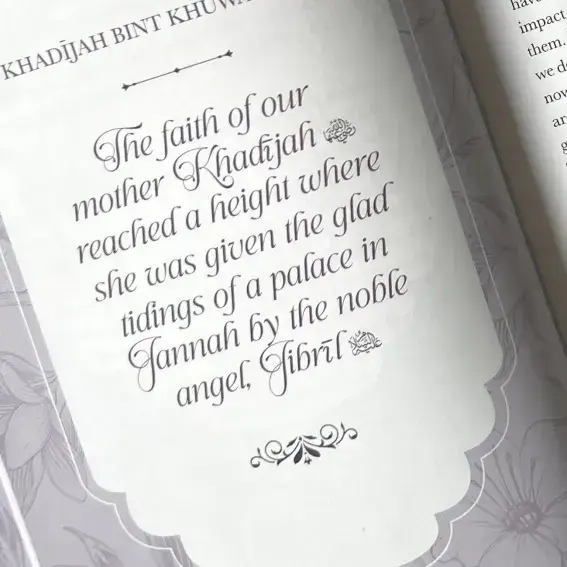 KHADĪJAH BINT
The faith of our
mother Khadījah
reached a height where
she was given the glad
tidings of a palace in
Jannah by the noble
angel, Jibrīl
impact
them.